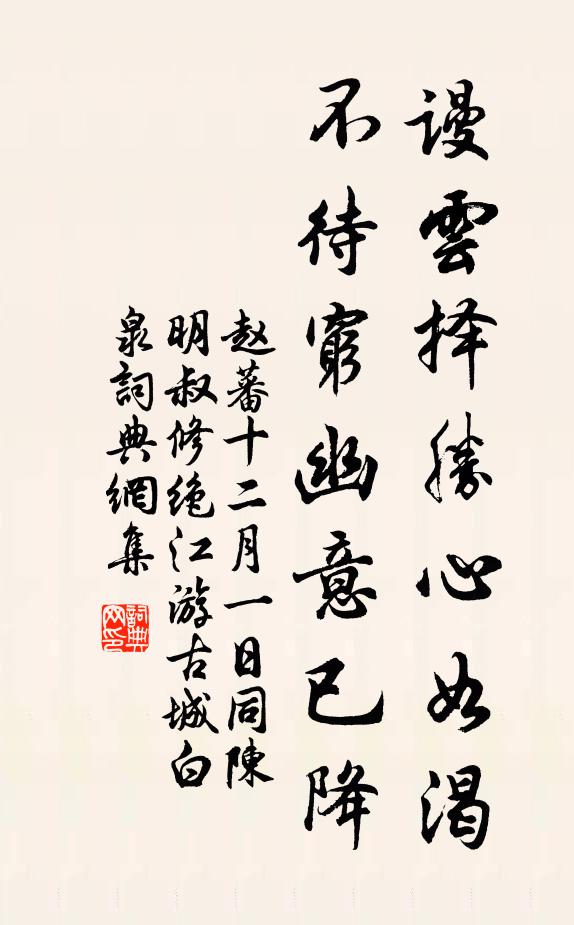 謾雲择勝心如渴
不待窮幽意已降
赵蕃十二月一日同陳
明叔修绝江游古城白
泉詞典網集
詞典网印